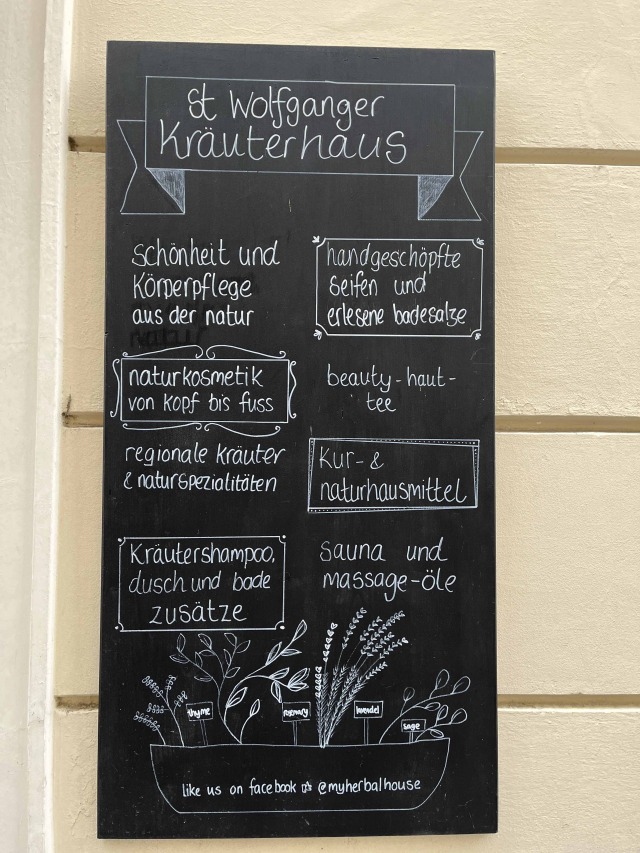 St Wolfganger
Kräuterhaus
Schönheit und
Körperpflege
aus der natur
naturkosmetik
von kopf bis fuss
regionale kräuter
& naturspezialitäten
Kräutershampoo,
dusch und bade
zusätze
handgeschöpfte
Seifen und
erlesene badesalze
beauty-haut-
tee
Kur- &
naturhausmittel
sauna und
massage-öle
thyme
rosemary
lavendel
sage
like us on facebook @myherbalhouse